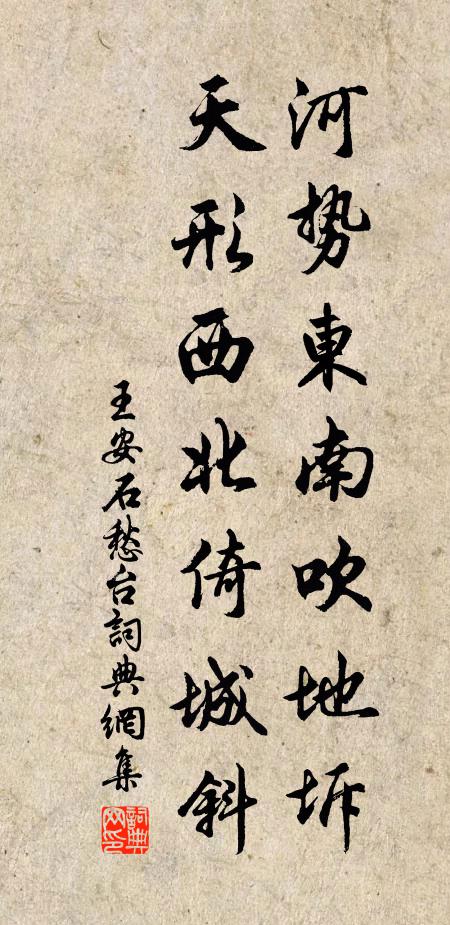 河势東南吹地坼
天形西北倚城斜
王安石愁台詞典網集
詞典網印